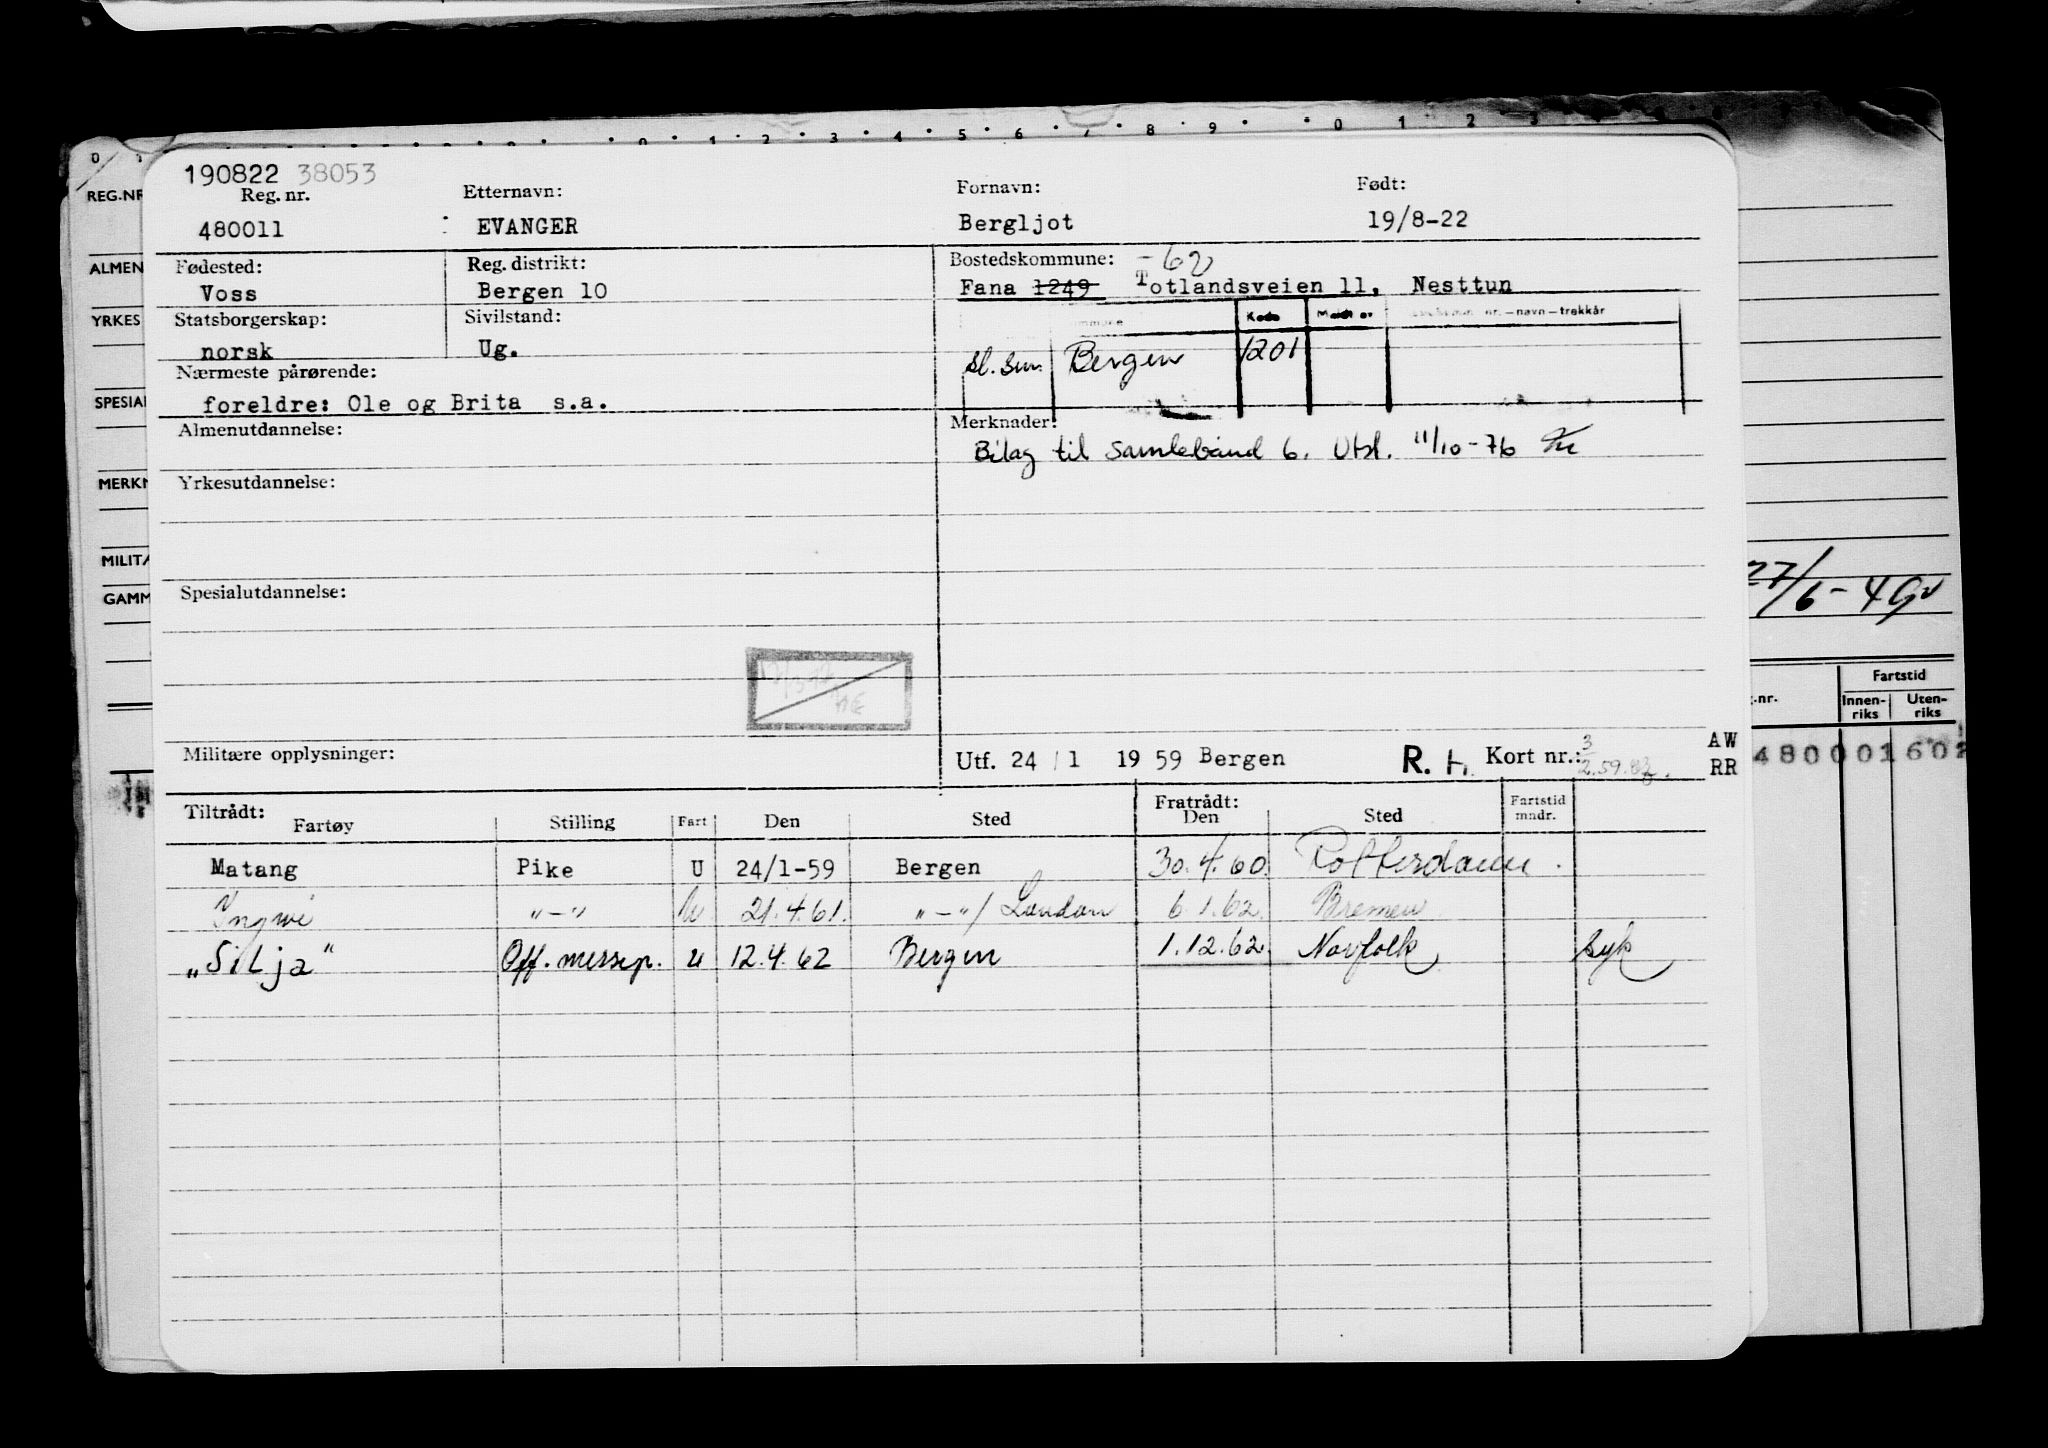 0 1 2 3 4 5 6 7 8 9 0 1 2 3
190822 38053
Reg. nr. Etternavn: Fornavn: Født:
480011 EVANGER Bergljot 19/8-22
Fødested: Reg. distrikt: Bostedskommune: -62
Voss Bergen 10 Fana 1249 Totlandsveien 11, Nesttun
Statsborgerskap: Sivilstand: Kode nr. – navn – trekkår
norsk Ug. Bergen 1201
Nærmeste pårørende:
foreldre: Ole og Brita s.a.
Almenutdannelse: Merknader:
Bilag til Samlebånd 6. Utst. 11/10-76
Yrkesutdannelse:
Spesialutdannelse:
Militære opplysninger: Utf. 24/1 1959 Bergen R. h. Kort nr.: 3 AW
RR
Tiltrådt: Fratrådt: Fartstid
Fartøy Stilling Fart Den Sted Den Sted mndr.
Matang Pike U 24/1-59 Bergen 30.4.60. Rotterdam.
Yngwi "-" U 21.4.61. "-"/ London 6.1.62. Bremen
"Silja" Off. messep. u 12.4.62 Bergen 1.12.62. Norfolk syk
REG.NR
ALMEN
YRKES
SPESIAL
MERKN
MILITÆ
GAMM
27/6-49
Fartstid
.nr. Innen-riks Uten-riks